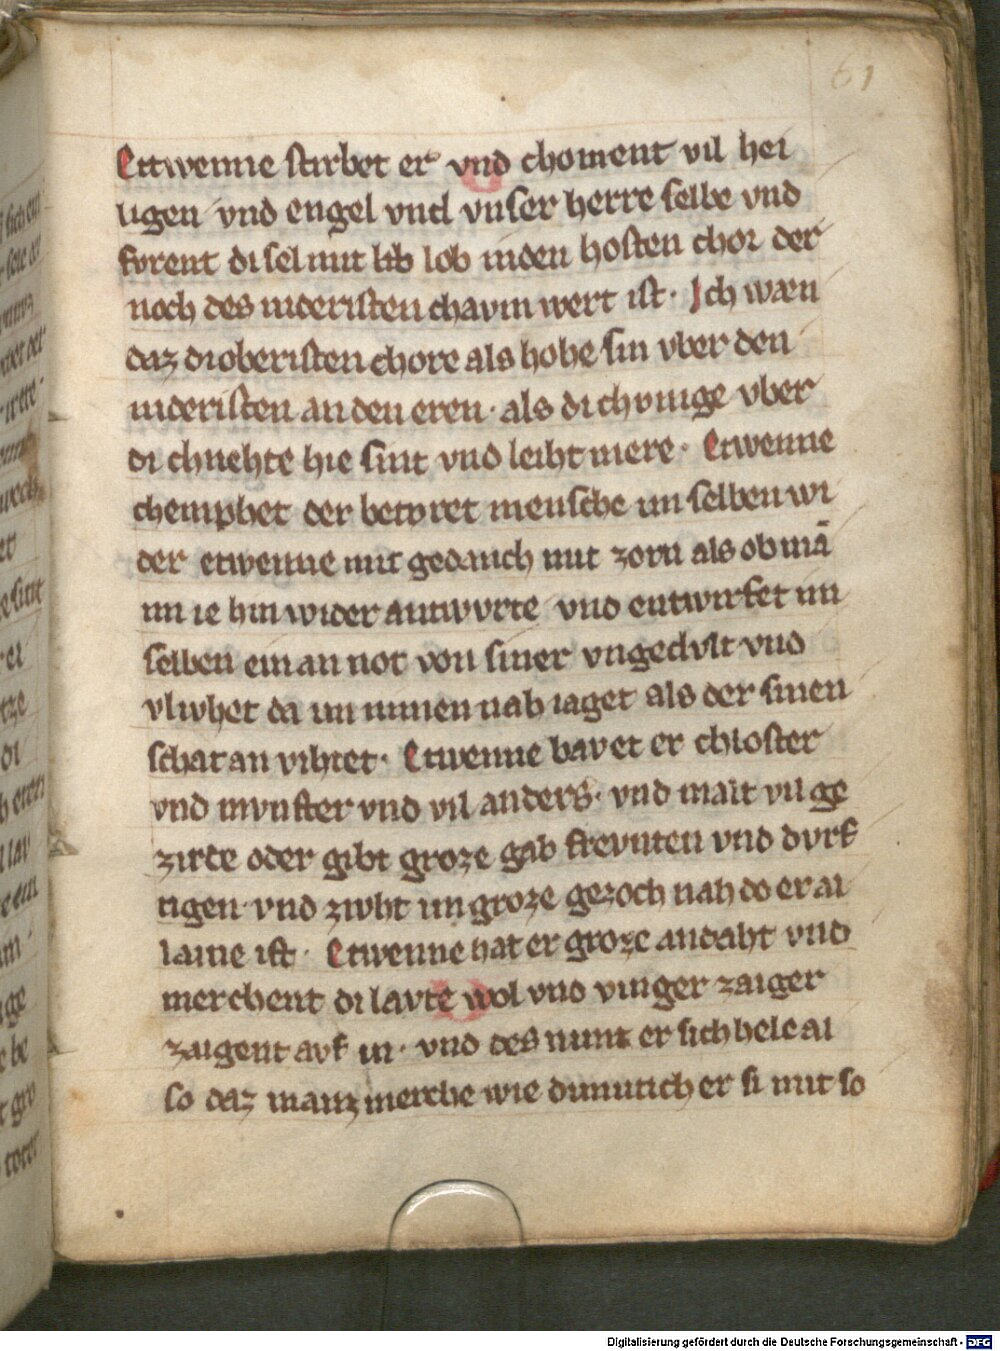 61
Ettwenne stirbet er vnd choment vil hei
ligen vnd engel vnd vnser herre selbe vnd
fvrent di sel mit lib lob in den hosten chor der
noch des nideristen chavm wert ist. Ich wæn
daz di oberisten chore als hohe sin vber den
nideristen an den eren. als di chvnige vber
di chnehte hie sint vnd leiht mere. Etwenne
chemphet der betoret mensche im selben wi
der etwenne mit gedanch mit zorn als ob mā
im ie hin wider antwvrte vnd entwirfet im
selben ein an not von siner vngedvlt vnd
vlivhet da im nimen nah iaget als der sinen
schat an vihtet. Etwenne bavet er chloster
vnd mvnster vnd vil anders. vnd mait vil ge
zirde oder gibt groze gab frevnten vnd dvrf
tigen vnd zivht im groze gezoch nah do er ai
laine ist. Etwenne hat er groze andaht vnd
merchent di lavte wol vnd vinger zaiger
zaigent avf in. vnd des nimt er sich hele al
so daz manz merche wie dimutich er si mit so
Digitalisierung gefördert durch die Deutsche Forschungsgemeinschaft - DFG